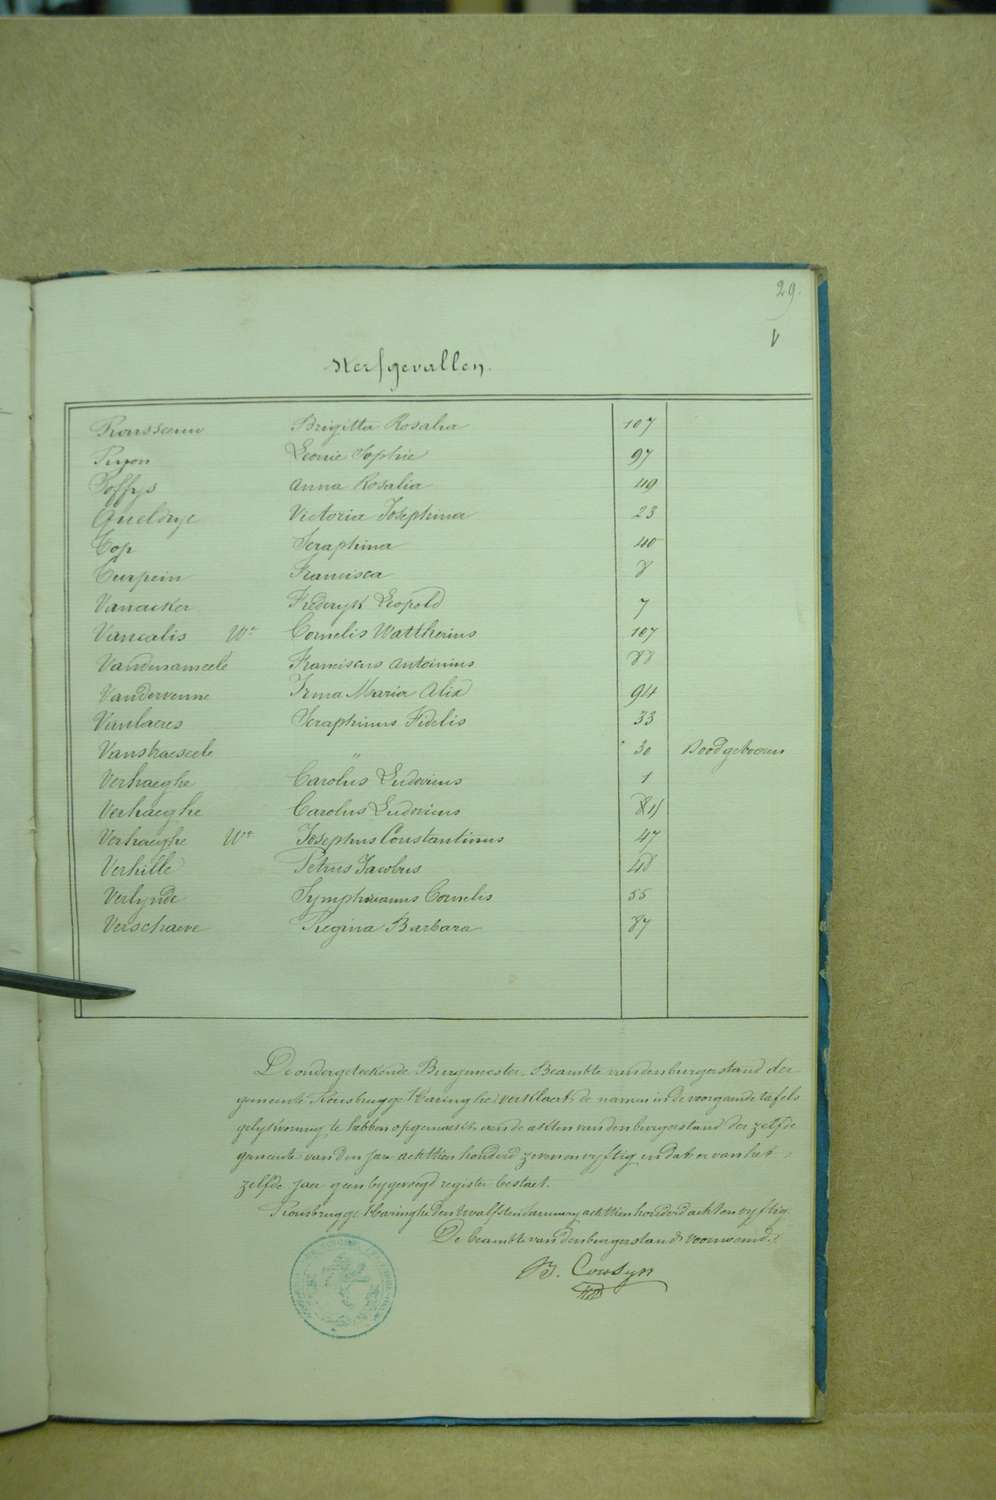 29.
V
Sterfgevallen.
Rousseeuw Brigitta Rosalia 107
Ryon Leonie Sophie 97
Soffys Anna Rosalia 49
Victoria Josephina 23
Top Seraphina 40
Turpein Francisca 8
Vanacker Frederyk Leopold 7
Vancalis Wr Cornelis Wattherius 107
Vandenameele Franciscus Antonius 88
Vandervenne Irma Maria Alix 94
Vanlaeres Seraphinus Fidelis 33
Vanstraeseele " 30 Doodgeboren
Verhaeghe Carolus Ludovicus 1
Verhaeghe Carolus Ludovicus 84
Verhaeghe Wr Josephus Constantinus 47
Verhille Petrus Jacobus 48
Verlynde Symphorianus Cornelis 55
Verschaeve Regina Barbara 87
De ondergeteekende Burgmeester, Beambte vandenburgerstand der
gemeente Rousbrugge Haringhe verklaert de namen in de voorgaende tafels
gelykvormig te hebben opgemaekt aen de akten van den burgerstand der zelfde
gemeente van den jaer achttien honderd zevenenvyftig en dat er van het
zelfde jaer geen bygevoegd register bestaet.
Rousbrugge Haringhe den twalfsten January achttien honderd achtenvyftig.
De beambte van den burgerstand voornoemd,
B. Cousyn